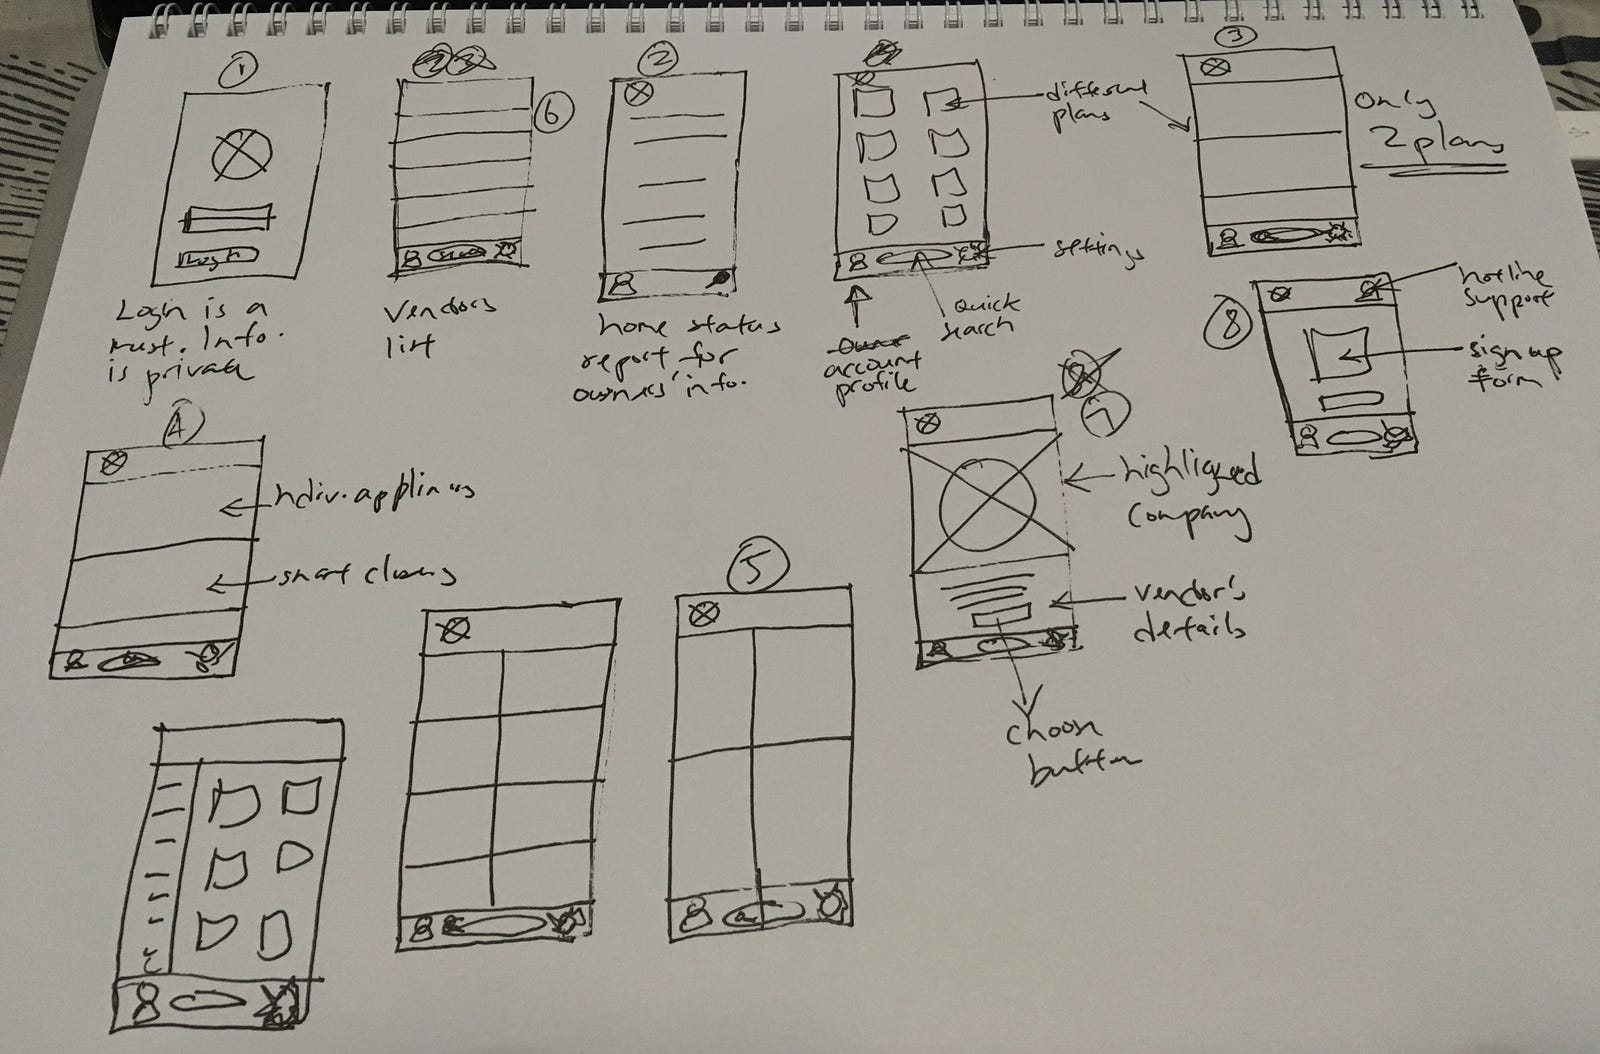 1
Login
Login is a
must. Info.
is private
6
Vendors
list
2
home status
report for
owners' info.
different
plans
settings
quick
search
account
profile
3
Only
2 plans
8
hotline
support
sign up
form
4
smart
5
7
Company
vendor's
details
button